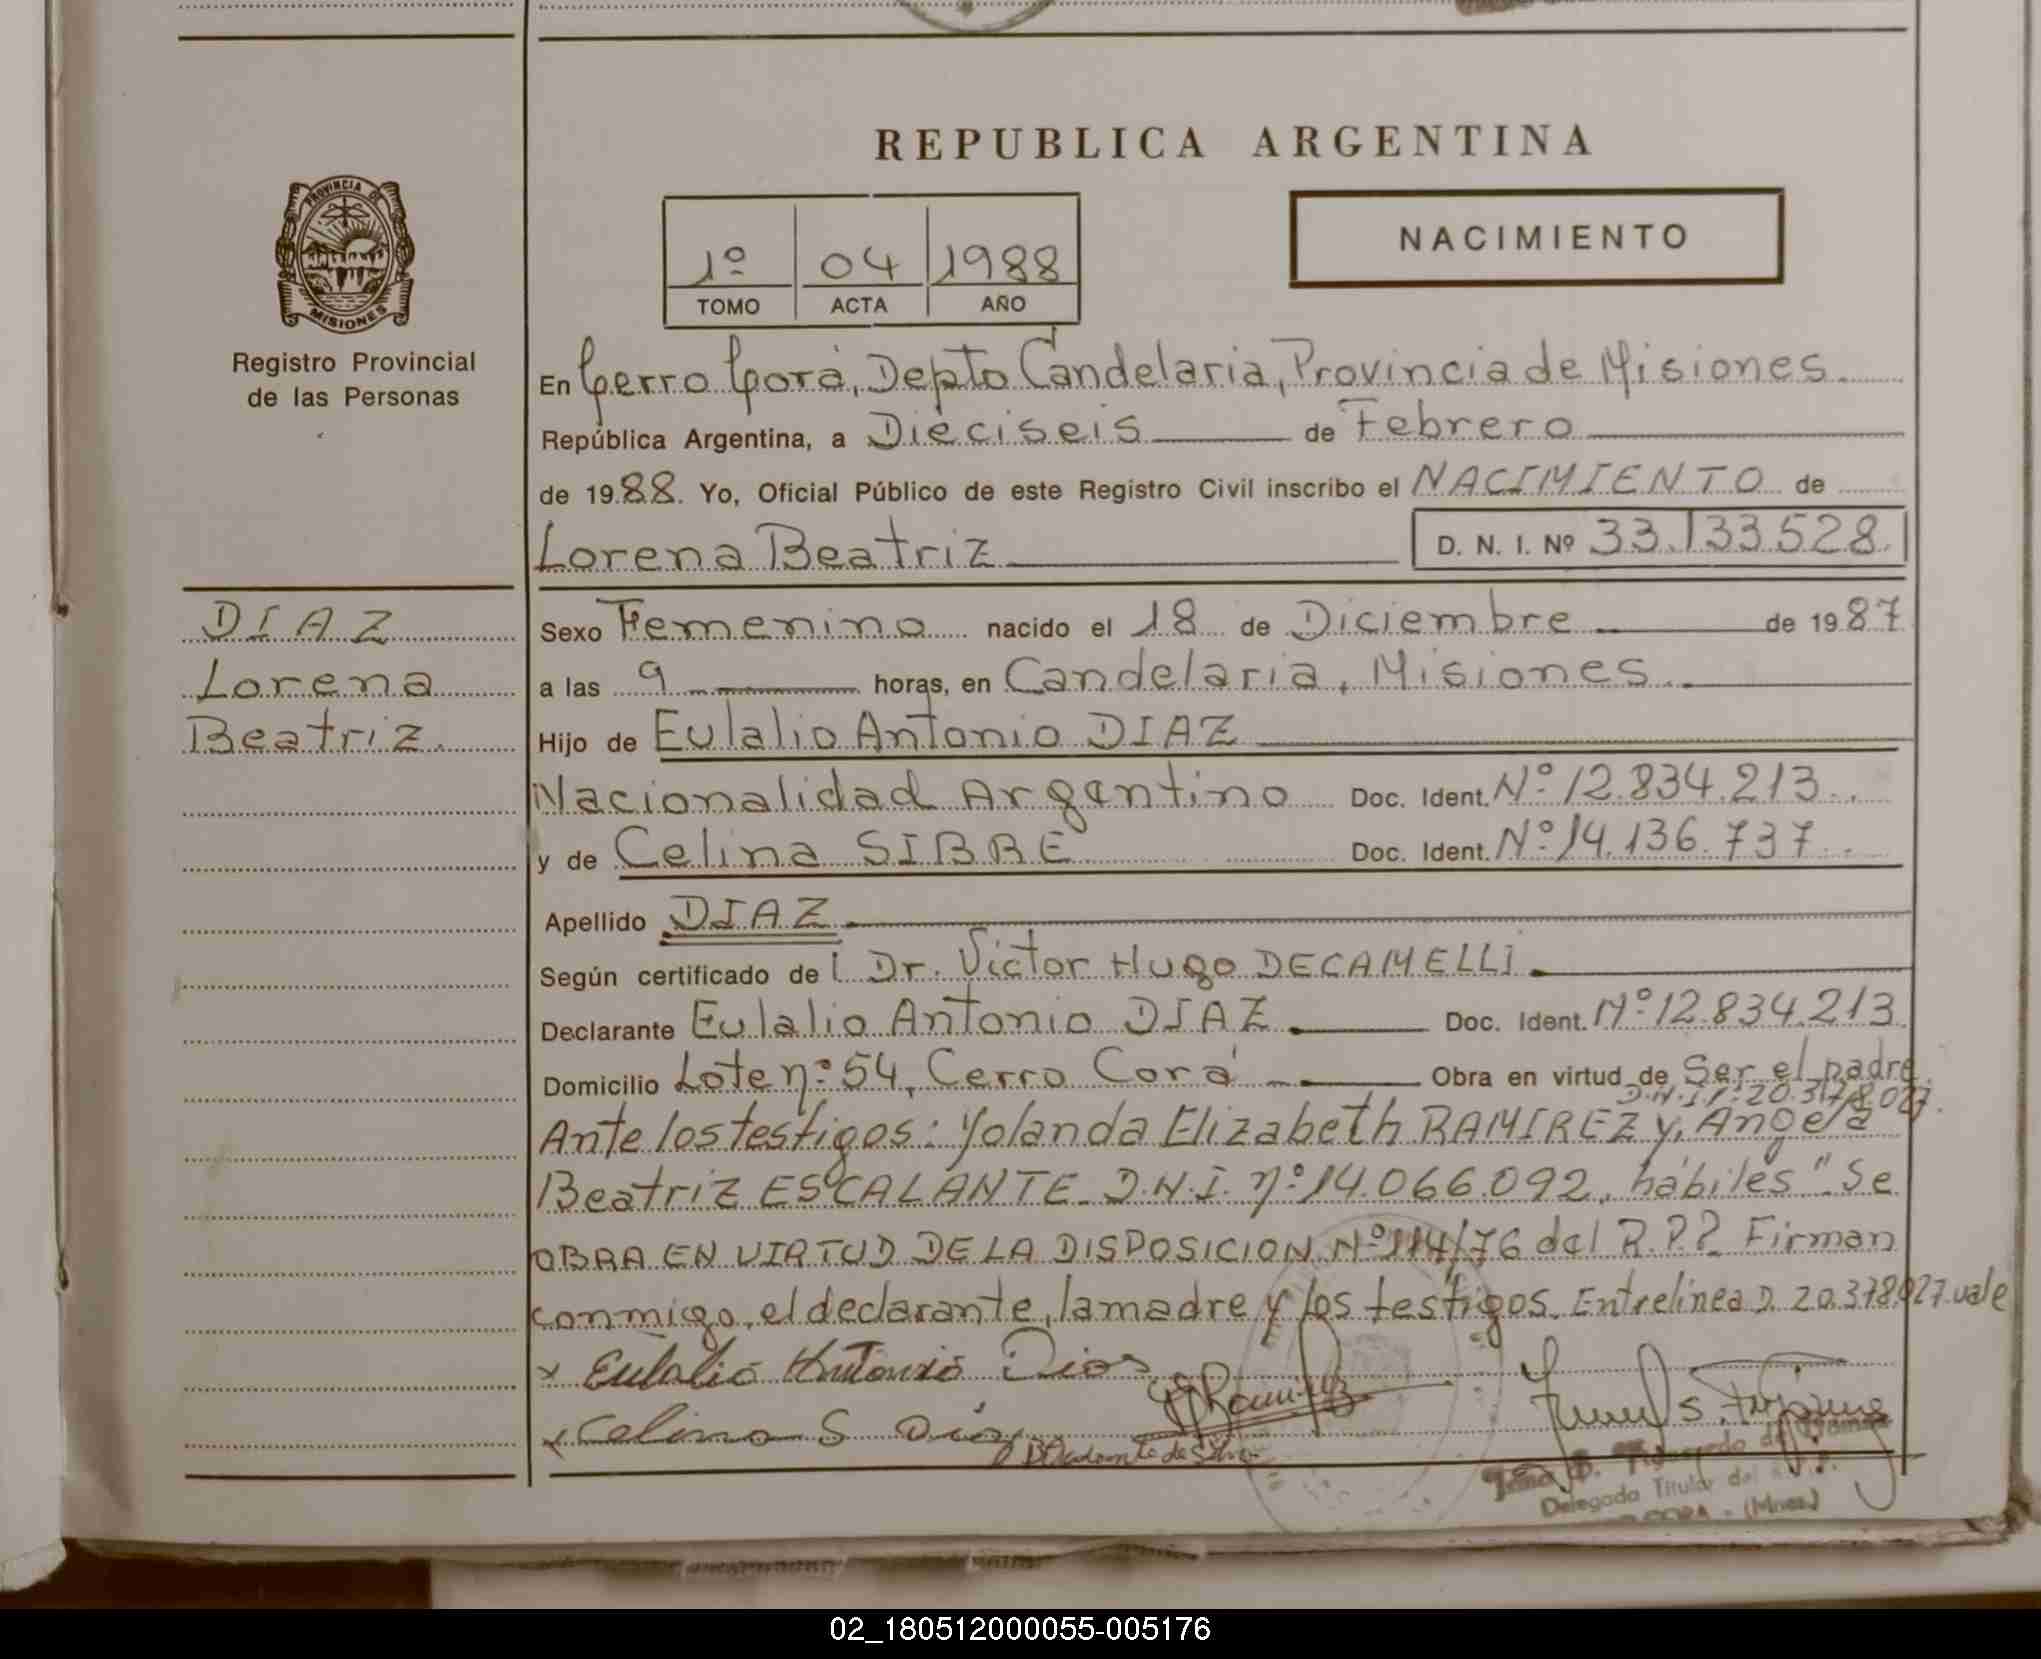 REPUBLICA ARGENTINA
PROVINCIA DE
MISIONES
Registro Provincial
de las Personas
1º 04 1988
TOMO ACTA AÑO
NACIMIENTO
En Cerro Corá, Depto Candelaria, Provincia de Misiones.
República Argentina, a Dieciseis de Febrero
de 1988. Yo, Oficial Público de este Registro Civil inscribo el NACIMIENTO de
Lorena Beatriz D. N. I. Nº 33.133528.
DIAZ
Lorena
Beatriz.
Sexo Femenino nacido el 18 de Diciembre de 1987
a las 9 horas, en Candelaria, Misiones.
Hijo de Eulalio Antonio DIAZ
Nacionalidad Argentino Doc. Ident. Nº 12.834.213.
y de Celina SIBRE Doc. Ident. Nº 14.136.737.
Apellido DIAZ
Según certificado de l Dr. Victor Hugo DECAMELLI.
Declarante Eulalio Antonio DIAZ Doc. Ident. Nº 12.834.213
Domicilio Lote nº 54, Cerro Corá Obra en virtud de Ser el padre.
D.N.I. Nº 20.378.027.
Ante los testigos: Yolanda Elizabeth RAMIREZ y, Angela
Beatriz ESCALANTE D.N.I. nº 14.066.092, hábiles " Se
OBRA EN VIRTUD DE LA DISPOSICION Nº 114/76 del R.P.P. Firman
conmigo, el declarante, la madre y los testigos. Entrelinea D. 20.378.027. vale
x Eulalio Antonio Dias
x Celina S Dias
Delegada Titular del
CORA - (Mnes.)
02_180512000055-005176